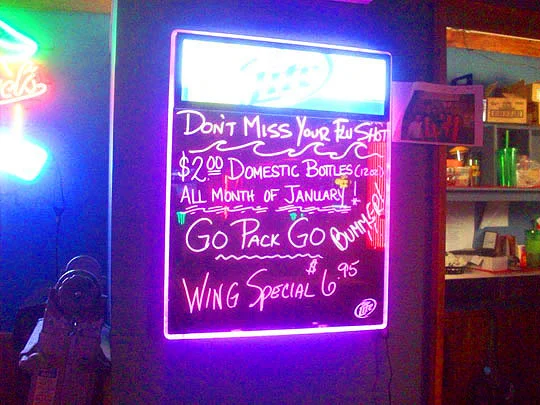 Lite
DON'T MISS YOUR FLU SHOT
$2.00 DOMESTIC BOTTLES (12oz)
ALL MONTH OF JANUARY!
GO PACK GO
BUMMER!
WING SPECIAL $6.95
Lite